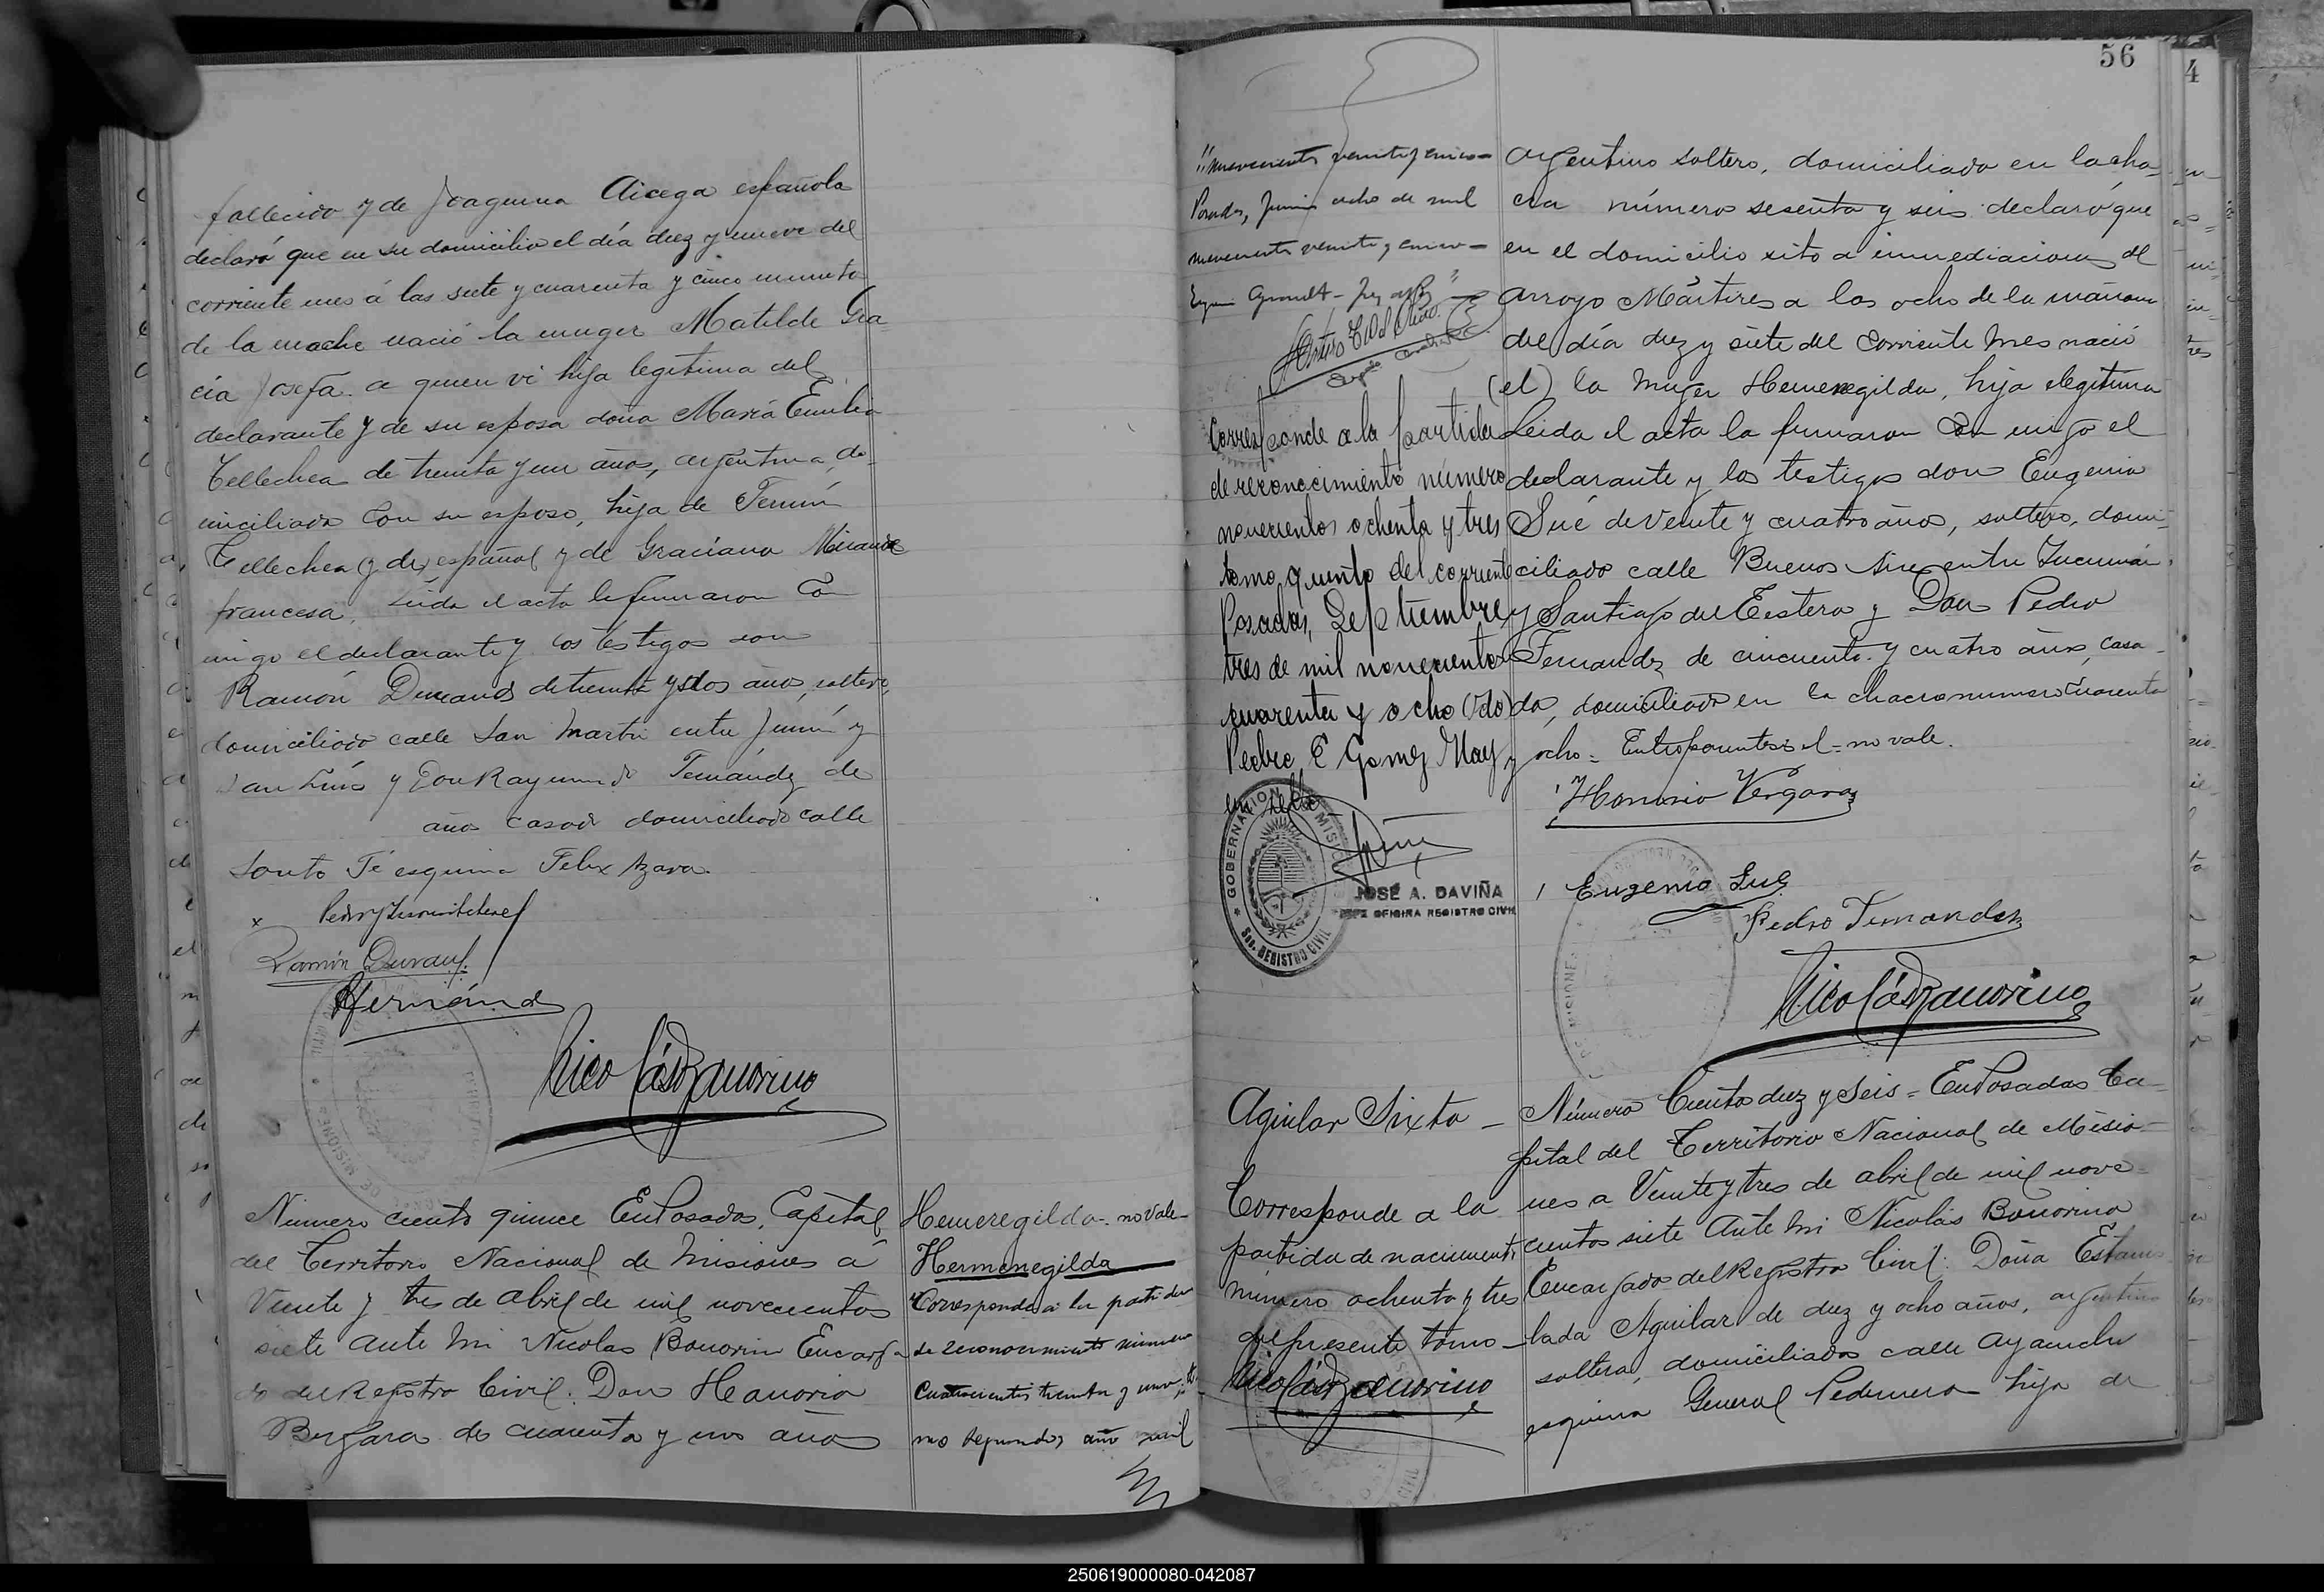 fallecido y de Joaquina Aicega española
declaró que en su domicilio el día diez y nueve del
corriente mes á las siete y cuarenta y cinco minuto
de la noche nació la muger Matilde Gra
cia Josefa a quien vi hija legitima del
declarante y de su esposa doña María Emilia
Tellechea de treinta y un años, argentina, do-
miciliada con su esposo, hija de Fermín
Tellechea (y de) español y de Graciana
francesa. Leida el acta la firmaron con
migo el declarante y los testigos don
Ramón Durand de treinta y dos años, soltero,
domiciliado calle San Martin entre Junín y
San Luis y Don Raymundo Fernández de
años casado domiciliado calle
Santa Fé esquina Felix Azara.
x Pedro
Ramón Durand
RHernánd
Nicolás Bonorino
Número ciento quince En Posadas, Capital
del Territorio Nacional de Misiones á
Veinte y tres de abril de mil novecientos
siete ante mi Nicolas Bonorino Encarga
do del Registro Civil: Don Honorio
Bergara de cuarenta y un años
Hemeregilda - no vale -
Hermenegilda
Corresponde a la partida
de reconocimiento número
Cuatrocientos treinta y uno, to-
mo segundo, año mil
56
4
"novecientos veinte y cinco -
Posadas, Junio ocho de mil
novecientos veinte y cinco -
Corresponde a la partida
de reconocimiento número
novecientos ochenta y tres
tomo quinto del corriente
Posadas, Septiembre
tres de mil novecientos
cuarenta y ocho (Vdo)
Pedro E Gomez Hay
un sello
GOBERNACION MISIONES
Sec. REGISTRO CIVIL
JOSÉ A. DAVIÑA
JEFE OFICINA REGISTRO CIVIL
argentino soltero, domiciliado en la cha-
cra número sesenta y seis declaró que
en el domicilio sito a inmediaciones del
Arroyo Mártires a las ocho de la mañana
del día diez y siete del corriente mes nació
(el) la muger Hemeregilda, hija ilegitima
Leida el acta la firmaron con migo el
declarante y los testigos don Eugenio
Sué de veinte y cuatro años, soltero, domi-
ciliado calle Buenos Aires entre Tucumán
y Santiago del Estero y Don Pedro
Fernandez de cincuenta y cuatro años, casa-
do, domiciliado en la chacra numero cuarenta
y ocho = Entreparentesis el - no vale.
Honorio Vergara
Eugenio Sué
Pedro Fernandez
Nicolás Bonorino
Aguilar Sixto -
Corresponde a la
partida de nacimiento
número ochenta y tres
del presente tomo -
Nicolás Bonorino
Número Ciento diez y Seis = En Posadas Ca-
pital del Territorio Nacional de Misio-
nes a Veinte y tres de abril de mil nove-
cientos siete ante mi Nicolás Bonorino
Encargado del Registro Civil: Doña Estanis
lada Aguilar de diez y ocho años, argentina
soltera, domiciliada calle Ayacucho
esquina General Pedernera hija de
250619000080-042087